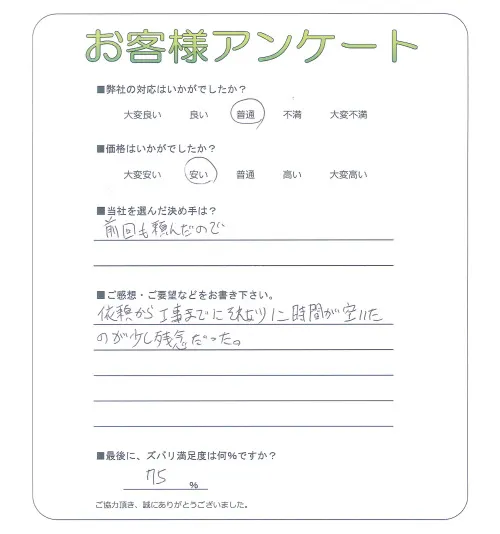 お客様アンケート
■弊社の対応はいかがでしたか？
大変良い 良い 普通 不満 大変不満
■価格はいかがでしたか？
大変安い 安い 普通 高い 大変高い
■当社を選んだ決め手は？
前回も頼んだので
■ご感想・ご要望などをお書き下さい。
依頼から工事までにそれなりに時間が空いた
のが少し残念だった。
■最後に、ズバリ満足度は何％ですか？
75 ％
ご協力頂き、誠にありがとうございました。